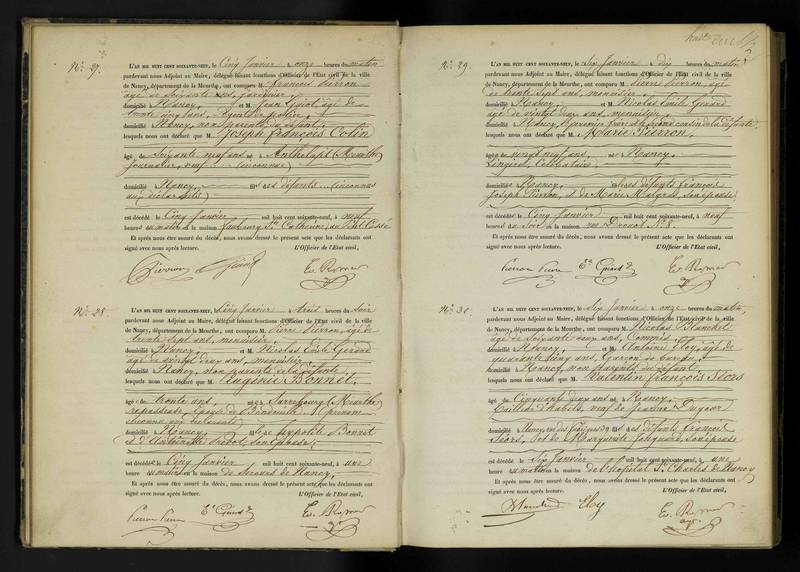 N.° 27.
L'AN MIL HUIT CENT SOIXANTE-NEUF, le Cinq Janvier à onze heures du matin
pardevant nous Adjoint au Maire, délégué faisant fonctions d'Officier de l'État civil de la ville
de Nancy, département de la Meurthe, ont comparu M. François Pierron
âgé de soixante ans, jardinier,
domicilié à Nancy, et M. Jean Guiot âgé de
trente cinq ans, agent de police,
domicilié à Nancy, non parents du défunt,
lesquels nous ont déclaré que M. Joseph François Colin
âgé de Soixante neuf ans né à Anthelupt (Meurthe)
journalier, veuf (inconnue)
domicilié à Nancy, fils des défunts (inconnus
aux déclarants)
est décédé le Cinq Janvier mil huit cent soixante-neuf, à neuf
heures du matin en la maison faubourg Ste Catherine, au
Et après nous être assuré du décès, nous avons dressé le présent acte que les déclarants ont
signé avec nous après lecture. L'Officier de l'État civil,
Pierron
N.° 28.
L'AN MIL HUIT CENT SOIXANTE-NEUF, Cinq Janvier à trois heures du soir
pardevant nous Adjoint au Maire, délégué faisant fonctions d'Officier de l'État civil de la ville
de Nancy, département de la Meurthe, ont comparu M. Pierre Pierron, âgé de
trente sept ans, menuisier,
domicilié à Nancy, et M. Nicolas Emile Gérard
âgé de vingt deux ans, menuisier,
domicilié à Nancy, non parents de la défunte,
lesquels nous ont déclaré que M. Eugénie Bonnet,
âgée de trente ans, née à Sarrebourg (Meurthe)
repasseuse, épouse de (prénom
inconnu aux déclarants)
domicilié à Nancy, fille de Hypolite Bonnet
et d'Antoinette son épouse,
est décédé le Cinq Janvier mil huit cent soixante-neuf, à une
heure du matin en la maison de Secours de Nancy,
Et après nous être assuré du décès, nous avons dressé le présent acte que les déclarants ont
signé avec nous après lecture. L'Officier de l'État civil,
Pierron Pierre
N.° 29.
L'AN MIL HUIT CENT SOIXANTE-NEUF, le Six Janvier à dix heures du matin
pardevant nous Adjoint au Maire, délégué faisant fonctions d'Officier de l'État civil de la ville
de Nancy, département de la Meurthe, ont comparu M. Pierre Pierron âgé
de trente sept ans, menuisier,
domicilié à Nancy, et M. Nicolas Emile Gérard
âgé de vingt deux ans, menuisier,
domicilié à Nancy, le premier frère et le second cousin de la défunte,
lesquels nous ont déclaré que M. Marie Pierron,
âgée de vingt neuf ans, née à Nancy,
Lingère, Célibataire,
domicilié à Nancy, fille des défunts François
Joseph Pierron, et de Marie son épouse,
est décédé le Cinq Janvier mil huit cent soixante-neuf, à neuf
heures du soir en la maison rue Drouot N.° 8.
Et après nous être assuré du décès, nous avons dressé le présent acte que les déclarants ont
signé avec nous après lecture. L'Officier de l'État civil,
Pierron Pierre
N.° 30.
L'AN MIL HUIT CENT SOIXANTE-NEUF, le Six Janvier à onze heures du matin,
pardevant nous Adjoint au Maire, délégué faisant fonctions d'Officier de l'État civil de la ville
de Nancy, département de la Meurthe, ont comparu M. Nicolas Blanchet
âgé de Soixante deux ans, Commis,
domicilié à Nancy, et M. Antoine Eloy, âgé de
quarante cinq ans, Garçon de bureau,
domicilié à Nancy, non parents du défunt,
lesquels nous ont déclaré que M. Valentin François
âgé de Cinquante deux ans né à Nancy,
Tailleur d'habits, veuf de Jeanne
domicilié à Nancy, fils des défunts François
et de Marguerite son épouse,
est décédé le Six Janvier mil huit cent soixante-neuf, à une
heure du matin en la maison de l'hôpital St Charles de Nancy
Et après nous être assuré du décès, nous avons dressé le présent acte que les déclarants ont
signé avec nous après lecture. L'Officier de l'État civil,
Eloy